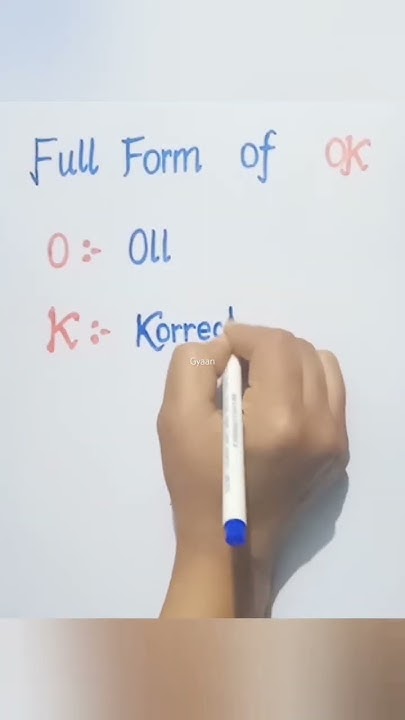 Full Form of OK
O :- Oll
K :- Korrect
Gyaan